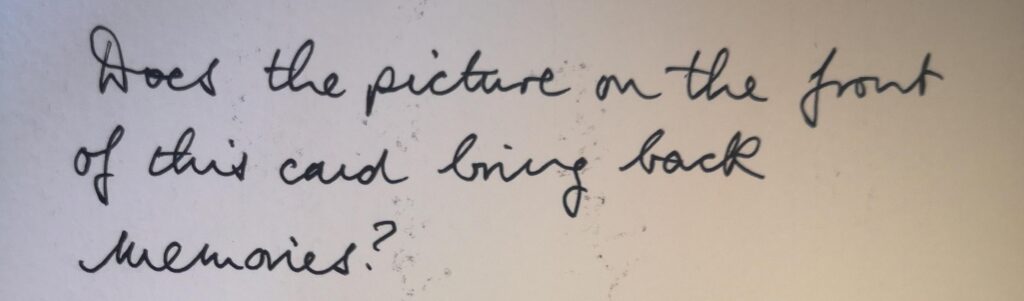 Does the picture on the front
of this card bring back
memories?